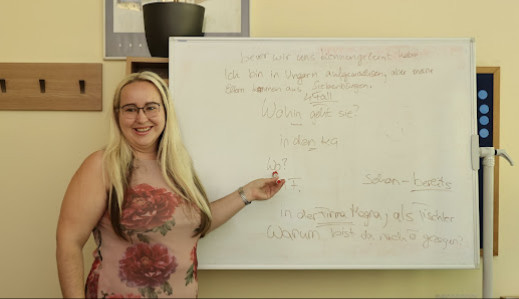 bevor wir uns kennengelernt haben
Ich bin in Ungarn aufgewachsen, aber meine
Eltern kommen aus Siebenbürgen.
Wohin geht sie?
in den
Wo?
schon - bereits
in der Firma als Tischler
Warum bist du nach gezogen?